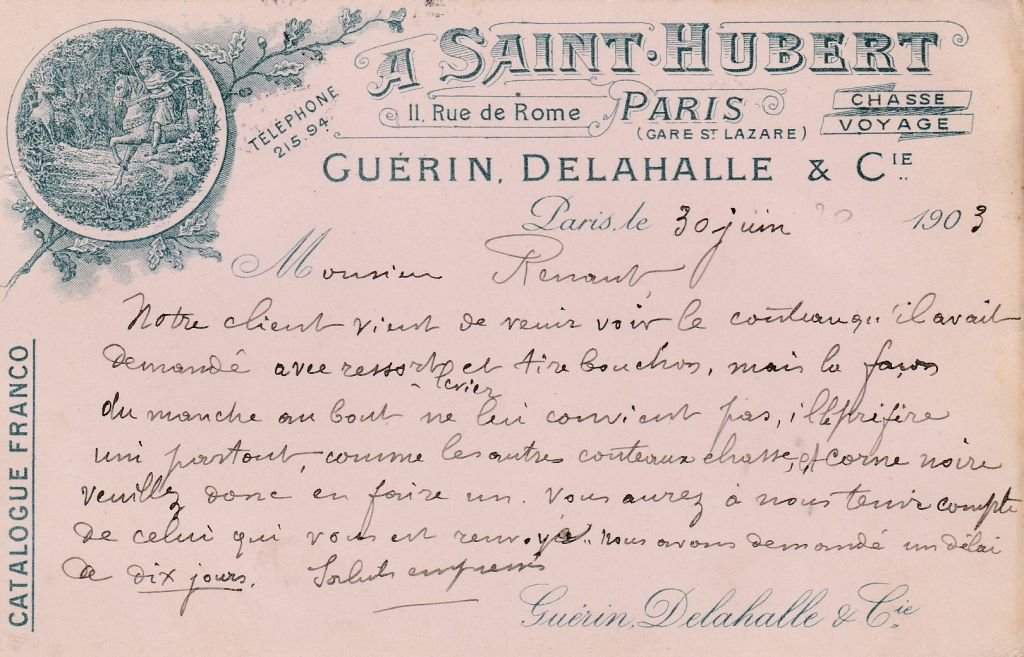 A SAINT-HUBERT
11, Rue de Rome PARIS
(GARE ST LAZARE)
CHASSE
VOYAGE
TÉLÉPHONE
215.94
GUÉRIN, DELAHALLE & CIE
Paris, le 30 juin 1903
Monsieur Renault
Notre client vient de venir voir le couteau qu'il avait
demandé avec ressort et tire bouchos, mais la façon
du manche au bout ne lui convient pas, il le préfère
uni partout, comme les autres couteaux chasse, et corne noire
veuillez donc en faire un. Vous aurez à nous tenir compte
de celui qui vous est renvoyé. nous avons demandé un délai
de dix jours. Saluts empressés
Guérin, Delahalle & Cie
CATALOGUE FRANCO